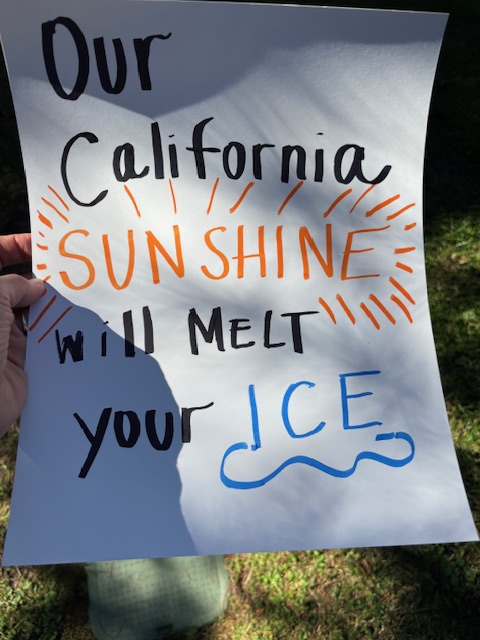 Our
California
SUNSHINE
will MELT
your ICE